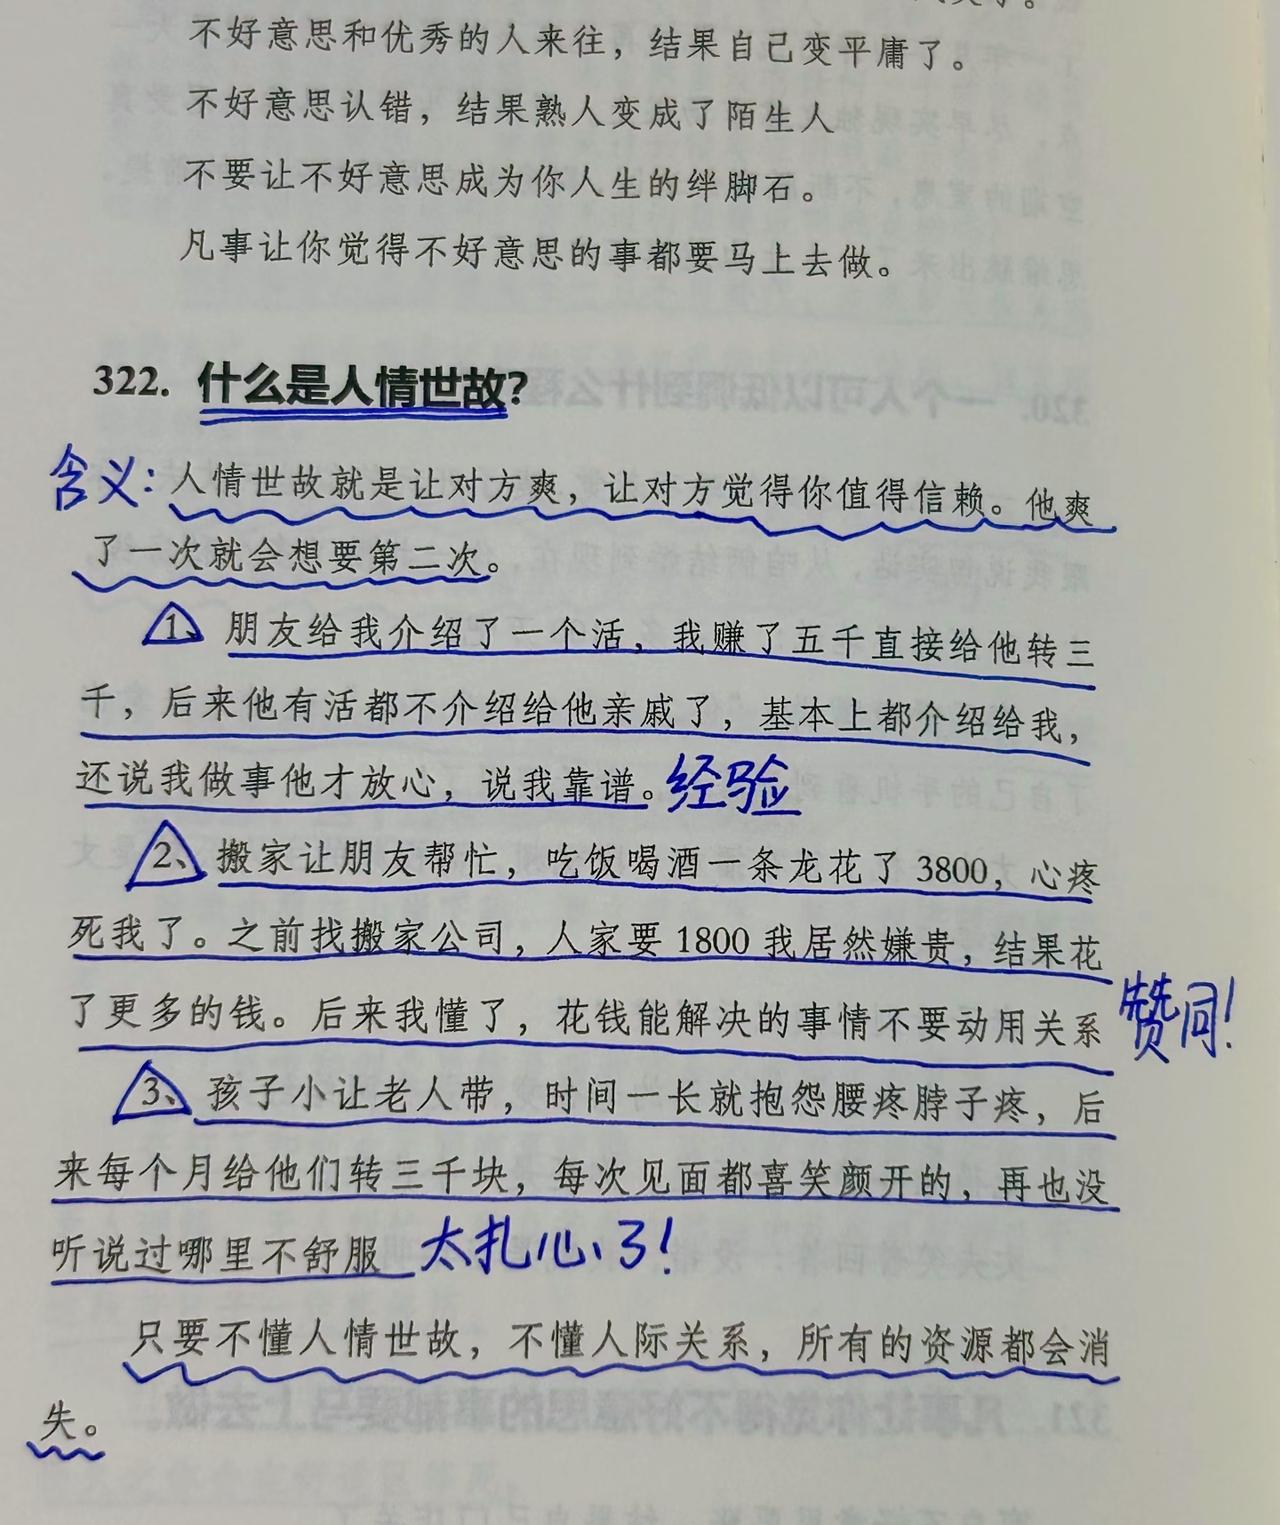 不好意思和优秀的人来往，结果自己变平庸了。
不好意思认错，结果熟人变成了陌生人
不要让不好意思成为你人生的绊脚石。
凡事让你觉得不好意思的事都要马上去做。
322. 什么是人情世故？
含义：人情世故就是让对方爽，让对方觉得你值得信赖。他爽
了一次就会想要第二次。
1、朋友给我介绍了一个活，我赚了五千直接给他转三
千，后来他有活都不介绍给他亲戚了，基本上都介绍给我，
还说我做事他才放心，说我靠谱。经验
2、搬家让朋友帮忙，吃饭喝酒一条龙花了 3800，心疼
死我了。之前找搬家公司，人家要 1800 我居然嫌贵，结果花
了更多的钱。后来我懂了，花钱能解决的事情不要动用关系
赞同！
3、孩子小让老人带，时间一长就抱怨腰疼脖子疼，后
来每个月给他们转三千块，每次见面都喜笑颜开的，再也没
听说过哪里不舒服 太扎心了！
只要不懂人情世故，不懂人际关系，所有的资源都会消
失。